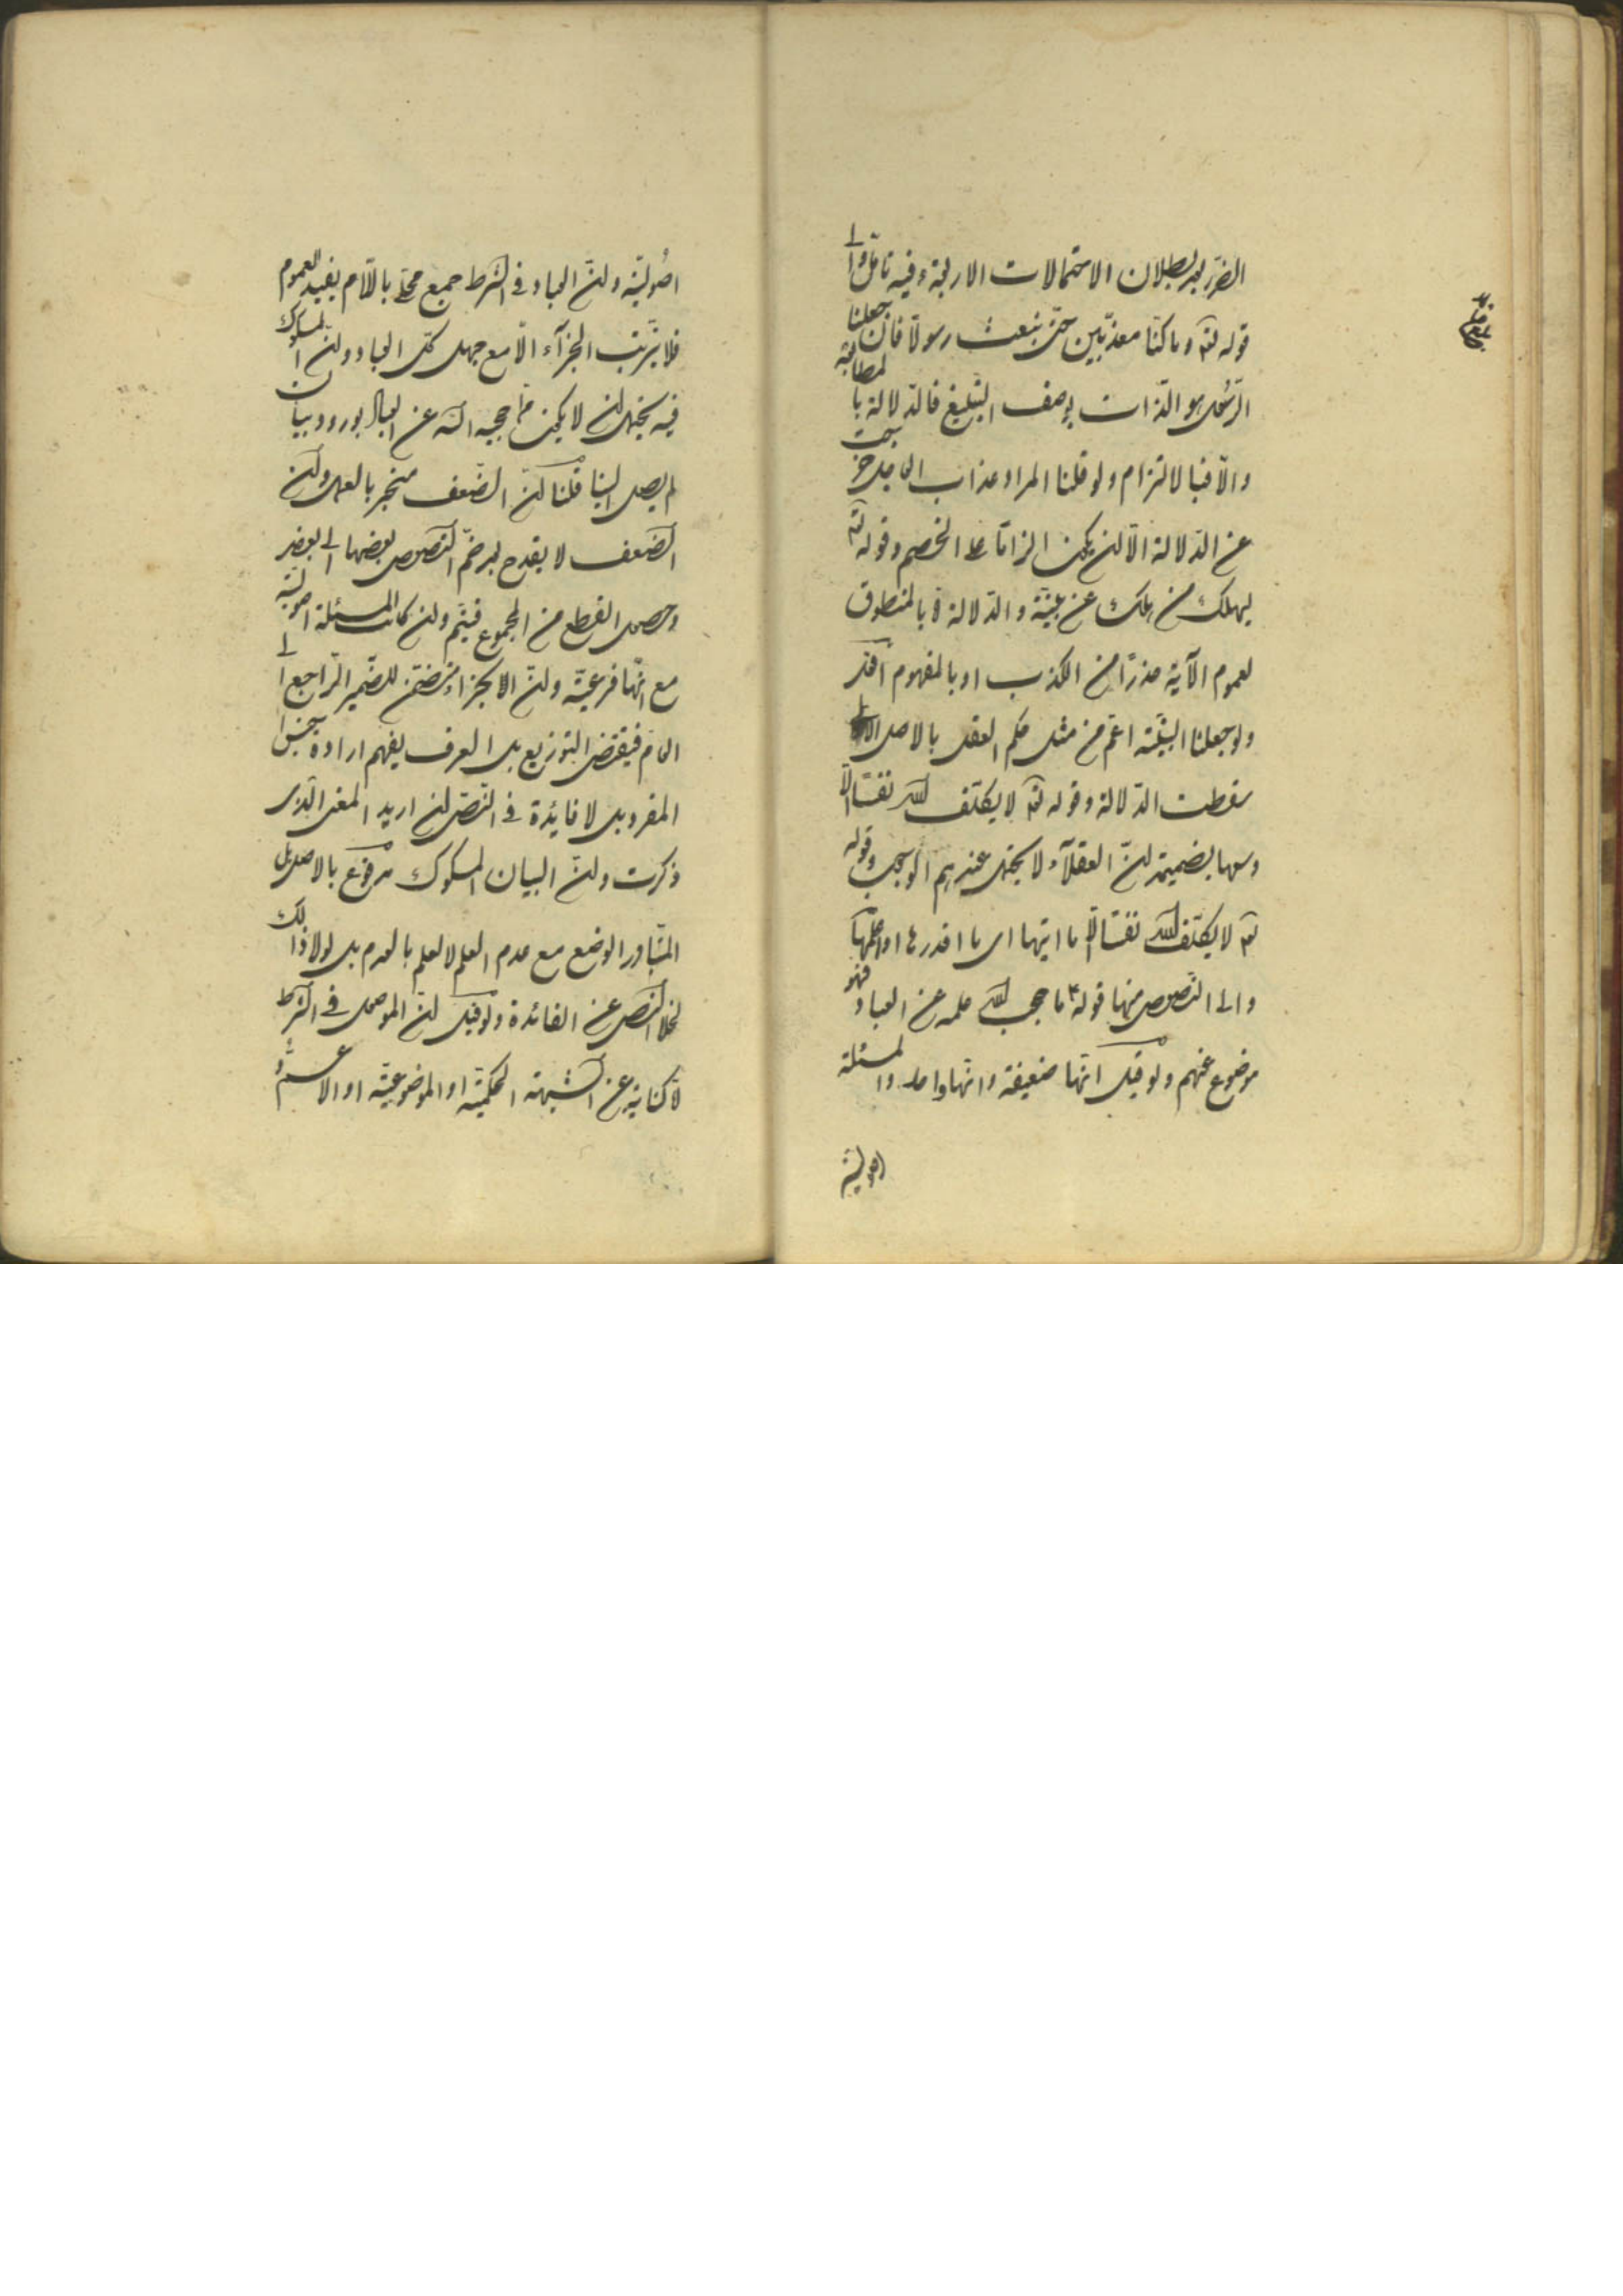 الضرر بعد بطلان الاحتمالات الاربعة وفيه تامل والى
قوله تع وما كنا معذبين حتى نبعث رسولا فان جعلنا
الرسول هو الذات بوصف التبليغ فالدلالة بالمطابقة
والا فبالالتزام ولو قلنا المراد عذاب خرجت
عن الدلالة الا ان يكون الزاما على الخصم وقوله تع
ليهلك من هلك عن بينة والدلالة بالمنطوق
لعموم الآية حذرا من الكذب او بالمفهوم
ولو جعلنا البينة اعم من مثل حكم العقل بالاصل
سقطت الدلالة وقوله تع لا يكلف الله نفسا الا
وسعها بضميمة ان العقلاء عندهم وقوله
تع لا يكلف الله نفسا الا ما اتيها اى ما اقدرها او اعلمها
والى النصوص منها قوله ع ما حجب الله علمه عن العباد فهو
موضوع عنهم ولو قيل انها ضعيفة وانها واحد والمسئلة
اصولية
اصولية وان العباد فى الشرط جمع محلى باللام يفيد العموم
فلا يترتب الجزآء الا مع جهل كل العباد وان المسكوك
فيه يحتمل ان لا يكون مما حجبه الله عن العباد بورود بيان
لم يصل الينا قلنا ان الضعف منجبر بالعمل وان
الضعف لا يقدح بعد ضم النصوص بعضها الى بعض
وحصول القطع من المجموع فيتم وان كانت المسئلة اصولية
مع انها فرعية وان الجزاء متضمن للضمير الراجع الى
العام فيقتضى التوزيع بل العرف يفهم ارادة الجنس
المفرد بل لا فائدة فى النص ان اريد المعنى الذى
ذكرت وان البيان المسكوك مدفوع بالاصل بل
المتبادر الوضع مع عدم العلم لا العلم بالعدم بل لولا ذلك
لخلا النص عن الفائدة ولو قيل ان الموصول فى الشرط
كناية عن الشبهة الحكمية او الموضوعية او الاعم